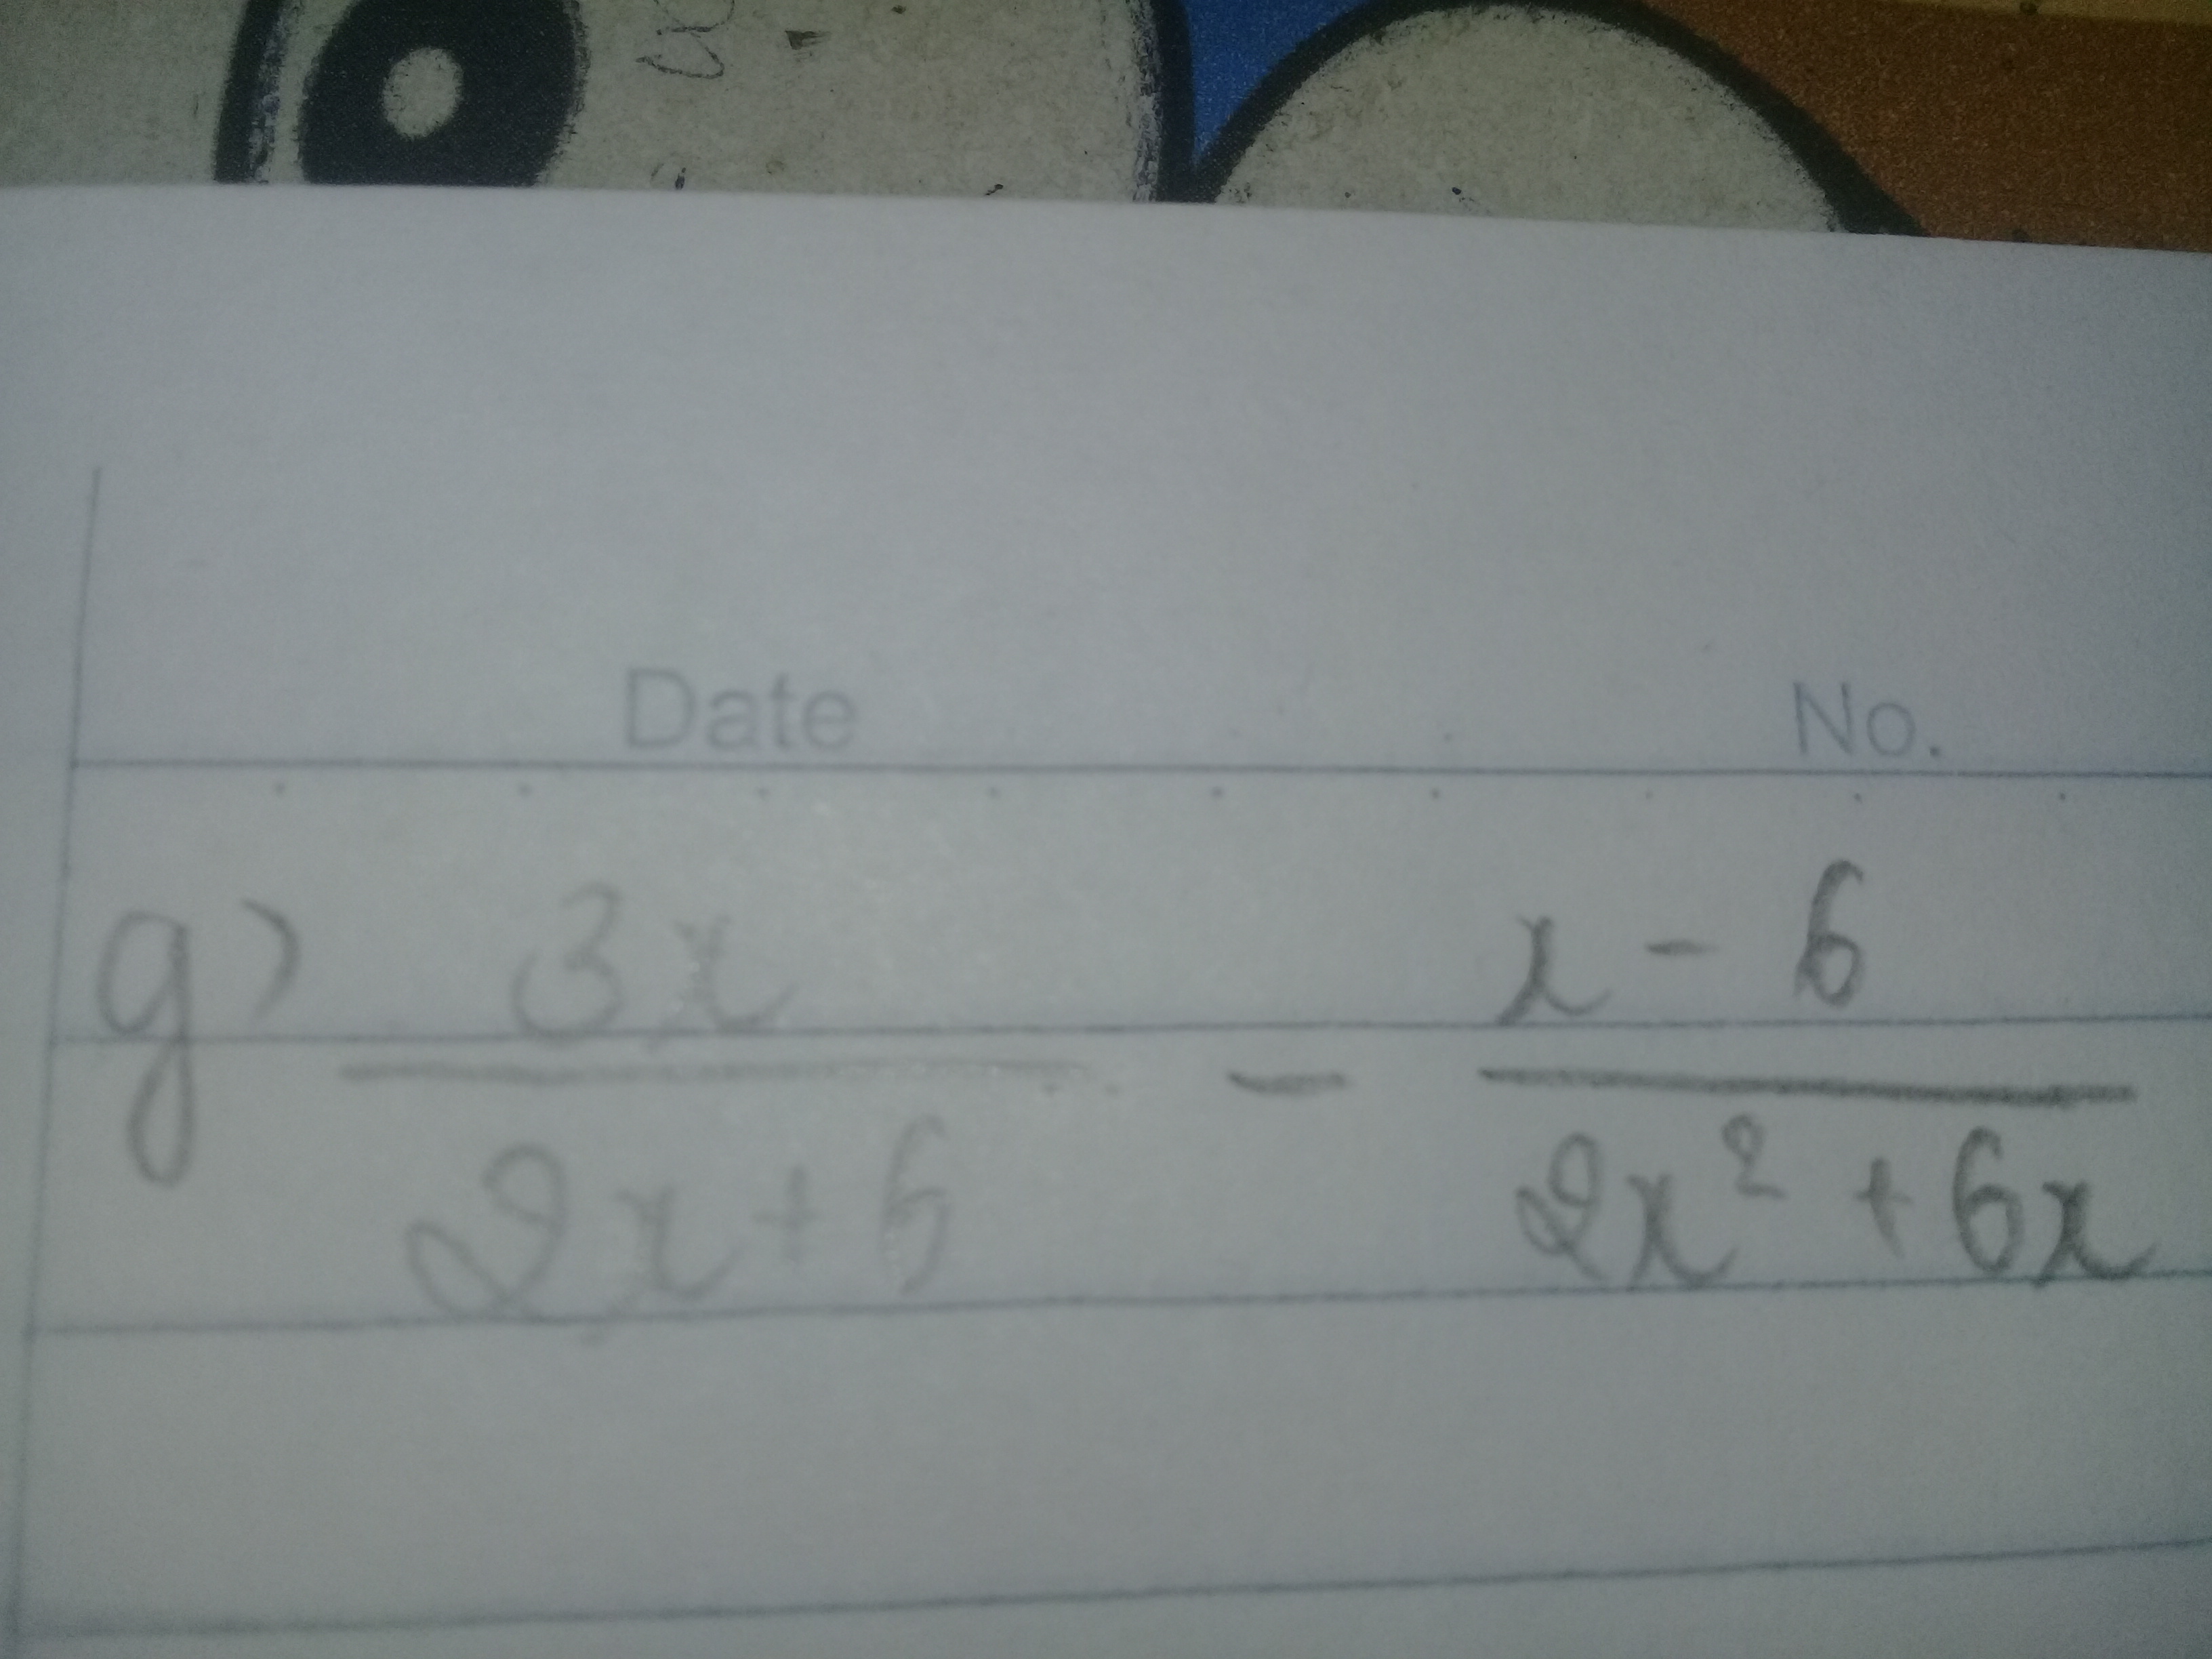 Date No.
g) 3x / 2x + 6 - x - 6 / 2x² + 6x